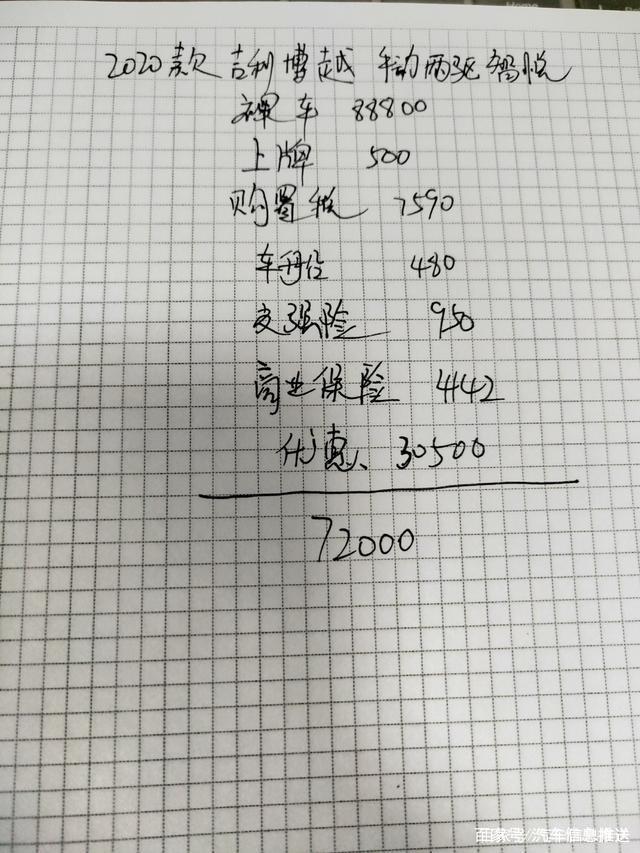 2020款吉利博越 手动两驱智悦
裸车 88800
上牌 500
购置税 7590
车船税 480
交强险 950
商业保险 4142
优惠、30500
72000
百家号/汽车信息推送